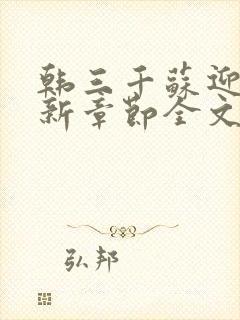 韩三千苏迎
新章节全文
弘邦